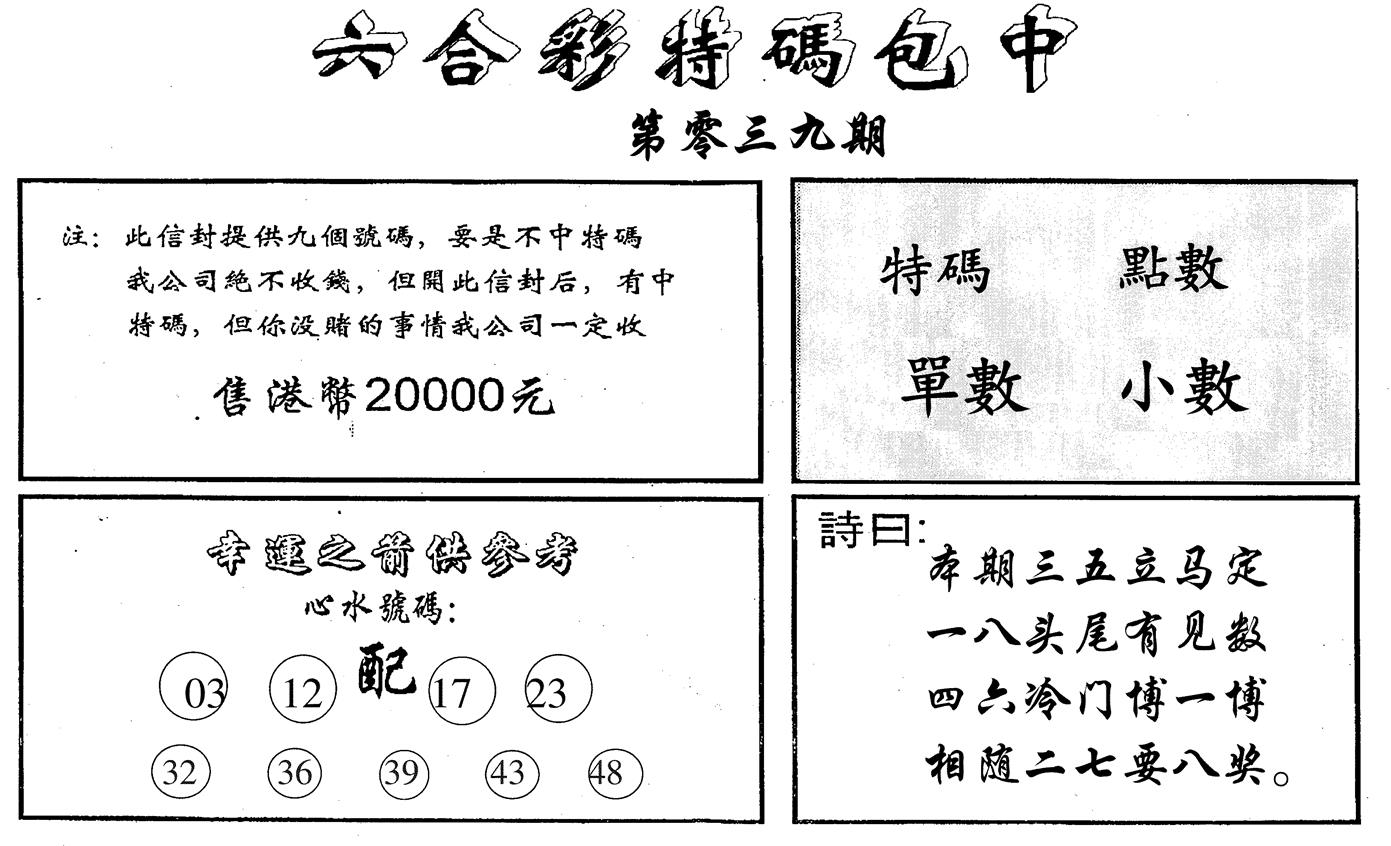 六合彩特碼包中
第零三九期
注：此信封提供九個號碼，要是不中特碼
我公司絶不收錢，但開此信封后，有中
特碼，但你没賭的事情我公司一定收
售港幣20000元
特碼 點數
單數 小數
幸運之箭供參考
心水號碼：
03 12 配 17 23
32 36 39 43 48
詩曰：
本期三五立马定
一八头尾有见数
四六冷门博一博
相随二七要八奖。